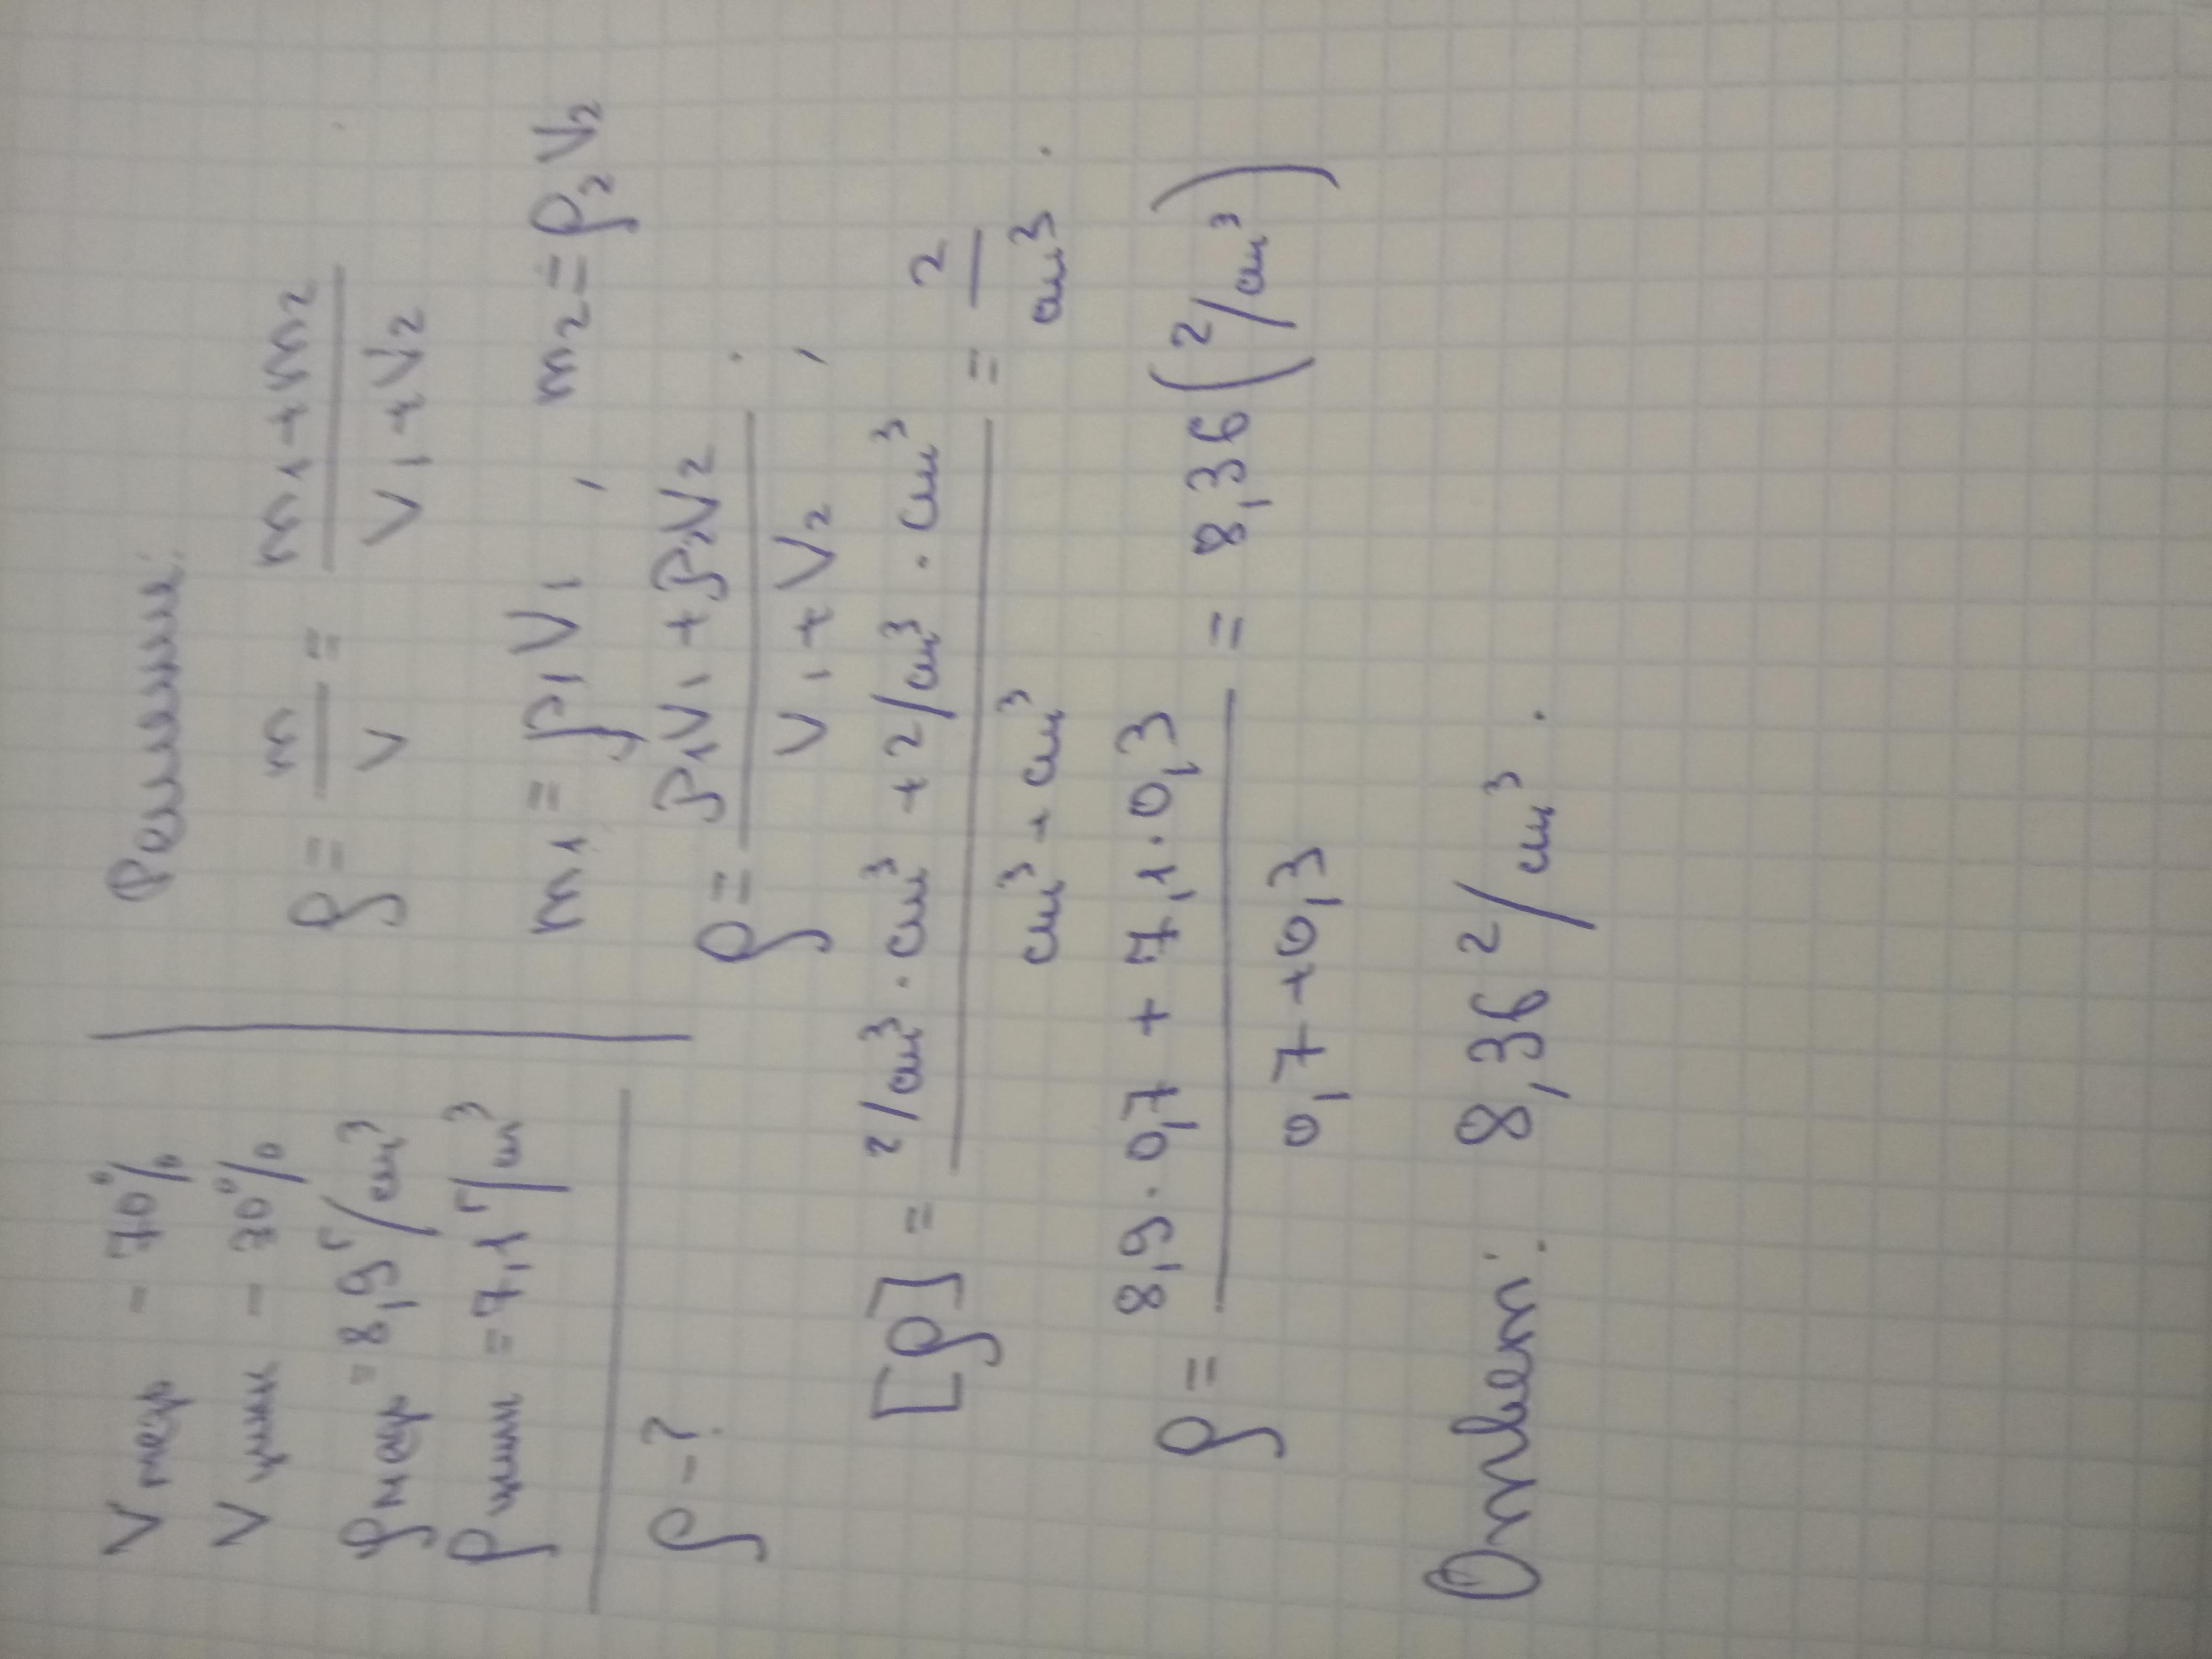 Vмед - 70%
Vцин - 30%
ρмед = 8,9 г/см³
ρцин = 7,1 г/см³
ρ - ?
Решение:
ρ = m/V = (m₁+m₂)/(V₁+V₂)
m₁ = ρ₁V₁, m₂ = ρ₂V₂
ρ = (ρ₁V₁ + ρ₂V₂)/(V₁+V₂);
[ρ] = (г/см³ · см³ + г/см³ · см³)/(см³ + см³) = г/см³.
ρ = (8,9 · 0,7 + 7,1 · 0,3)/(0,7 + 0,3) = 8,36 (г/см³)
Ответ: 8,36 г/см³.